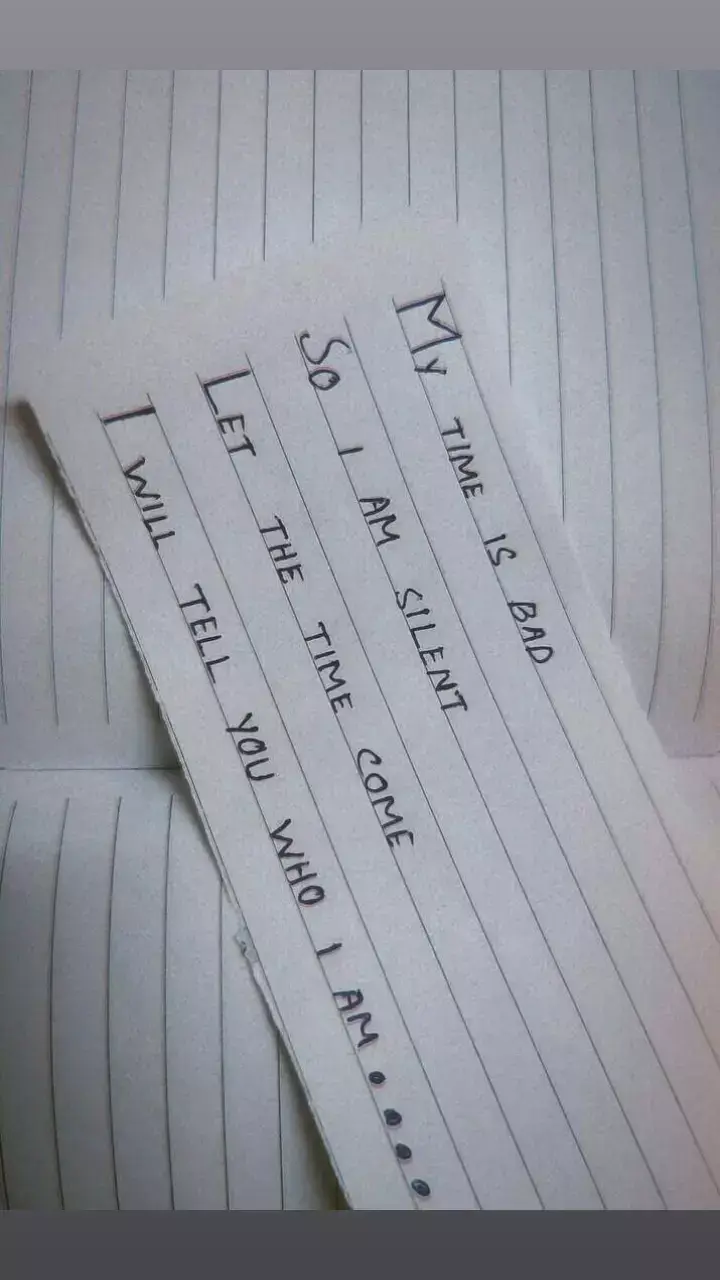 My TIME IS BAD
SO I AM SILENT
LET THE TIME COME
I WILL TELL YOU WHO I AM....